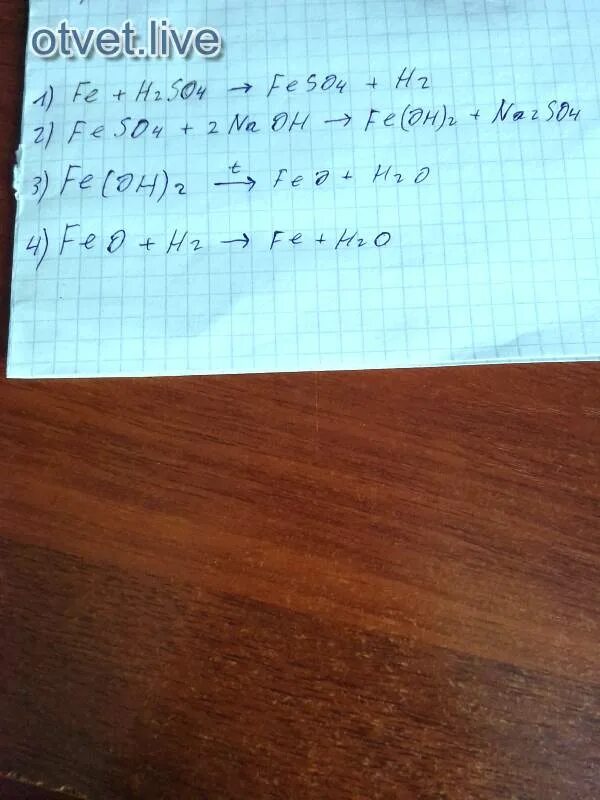 otvet.live
1) Fe + H2SO4 → FeSO4 + H2
2) FeSO4 + 2NaOH → Fe(OH)2 + Na2SO4
3) Fe(OH)2 t→ FeO + H2O
4) FeO + H2 → Fe + H2O